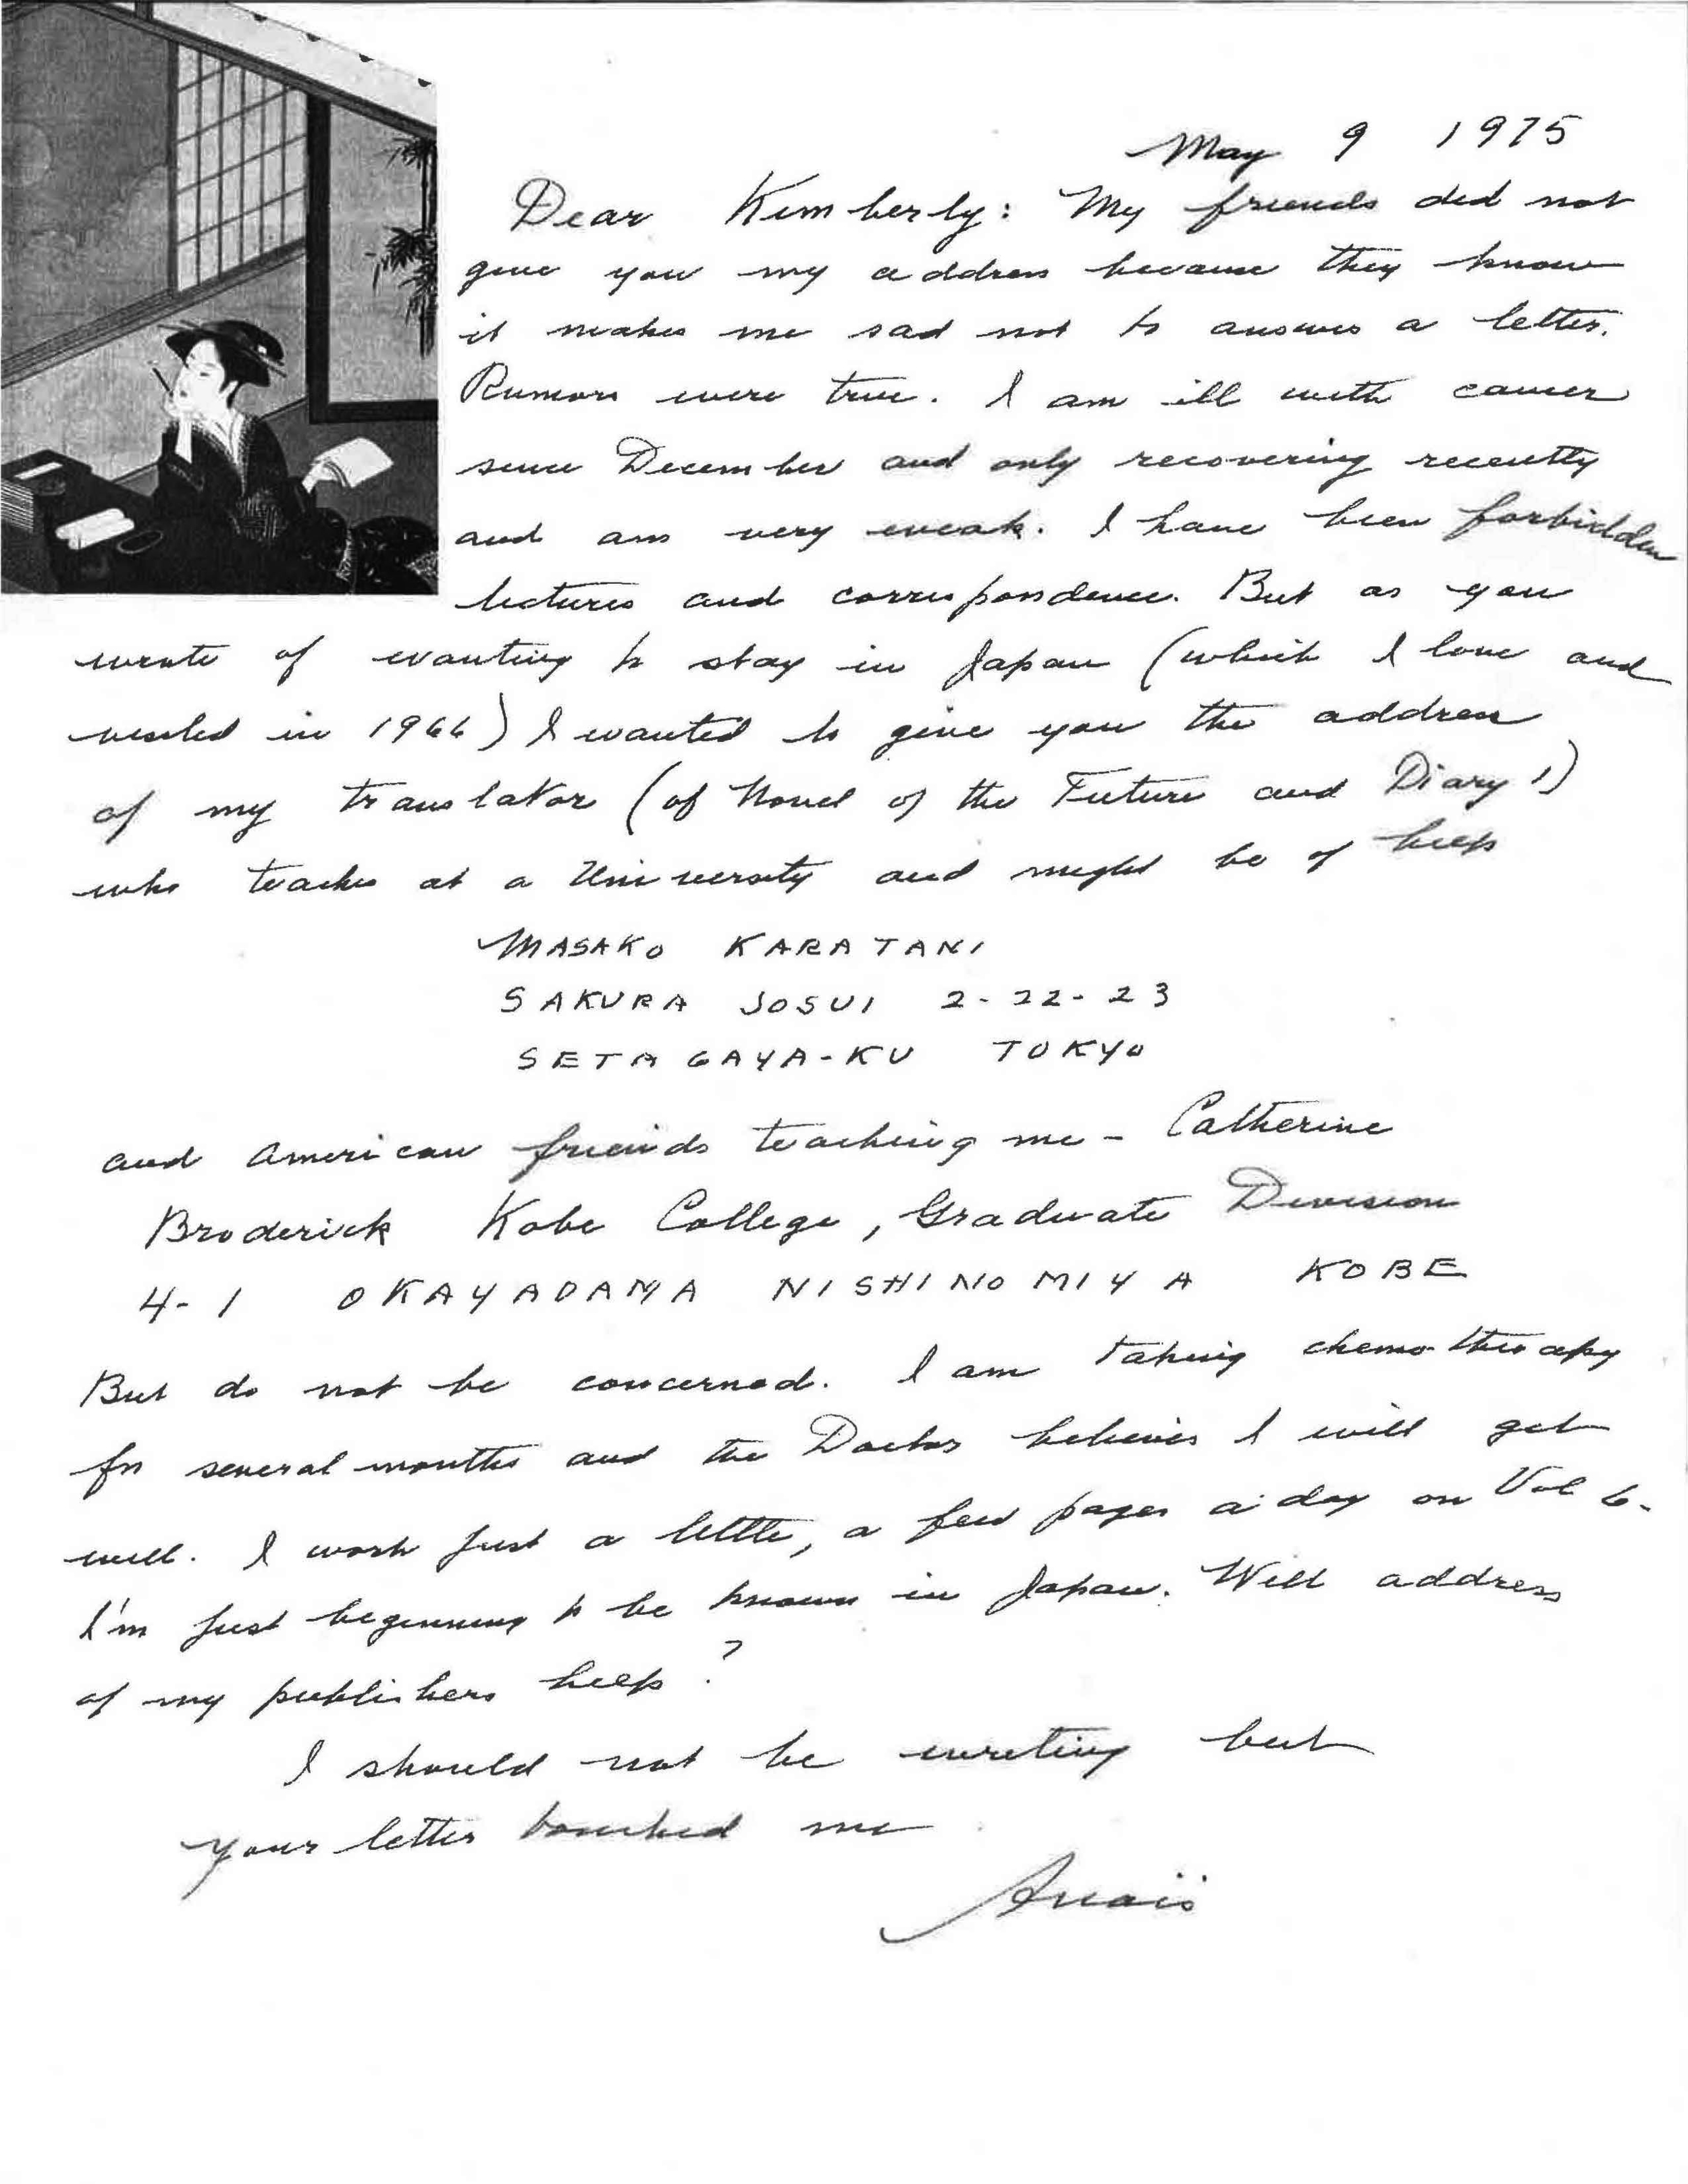 May 9 1975
Dear Kimberly: My friends did not
give you my address because they know
it makes me sad not to answer a letter.
Rumors were true. I am ill with cancer
since December and only recovering recently
and am very weak. I have been forbidden
lectures and correspondence. But as you
wrote of wanting to stay in Japan (which I love and
visited in 1966) I wanted to give you the address
of my translator (of Novel of the Future and Diary 1)
who teaches at a University and might be of help
MASAKO KARATANI
SAKURA JOSUI 2-22-23
SETAGAYA-KU TOKYO
and American friends teaching me - Catherine
Broderick Kobe College, Graduate Division
4-1 OKAYADAMA NISHINOMIYA KOBE
But do not be concerned. I am taking chemotherapy
for several months and the Doctor believes I will get
well. I work just a little, a few pages a day on Vol 6-
I'm just beginning to be known in Japan. Will address
of my publishers help?
I should not be writing but
your letter touched me
Anaïs